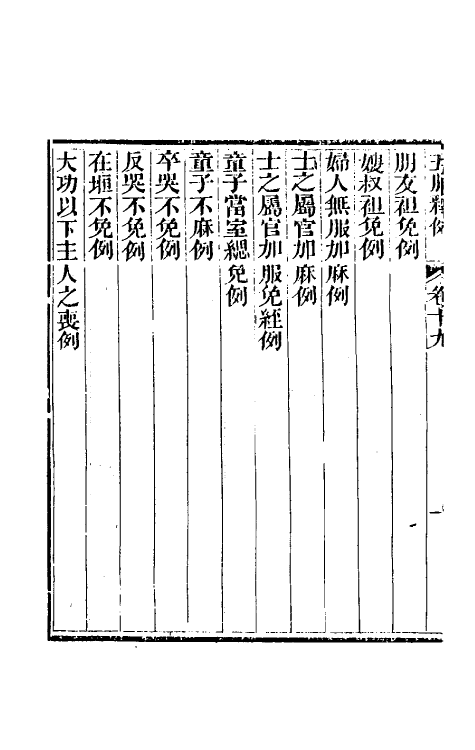 五服釋例 卷十九 一
朋友袒免例
嫂叔袒免例
婦人無服加麻例
士之屬官加麻例
士之屬官加服免絰例
童子當室緦免例
童子不麻例
卒哭不免例
反哭不免例
在堩不免例
大功以下主人之喪例